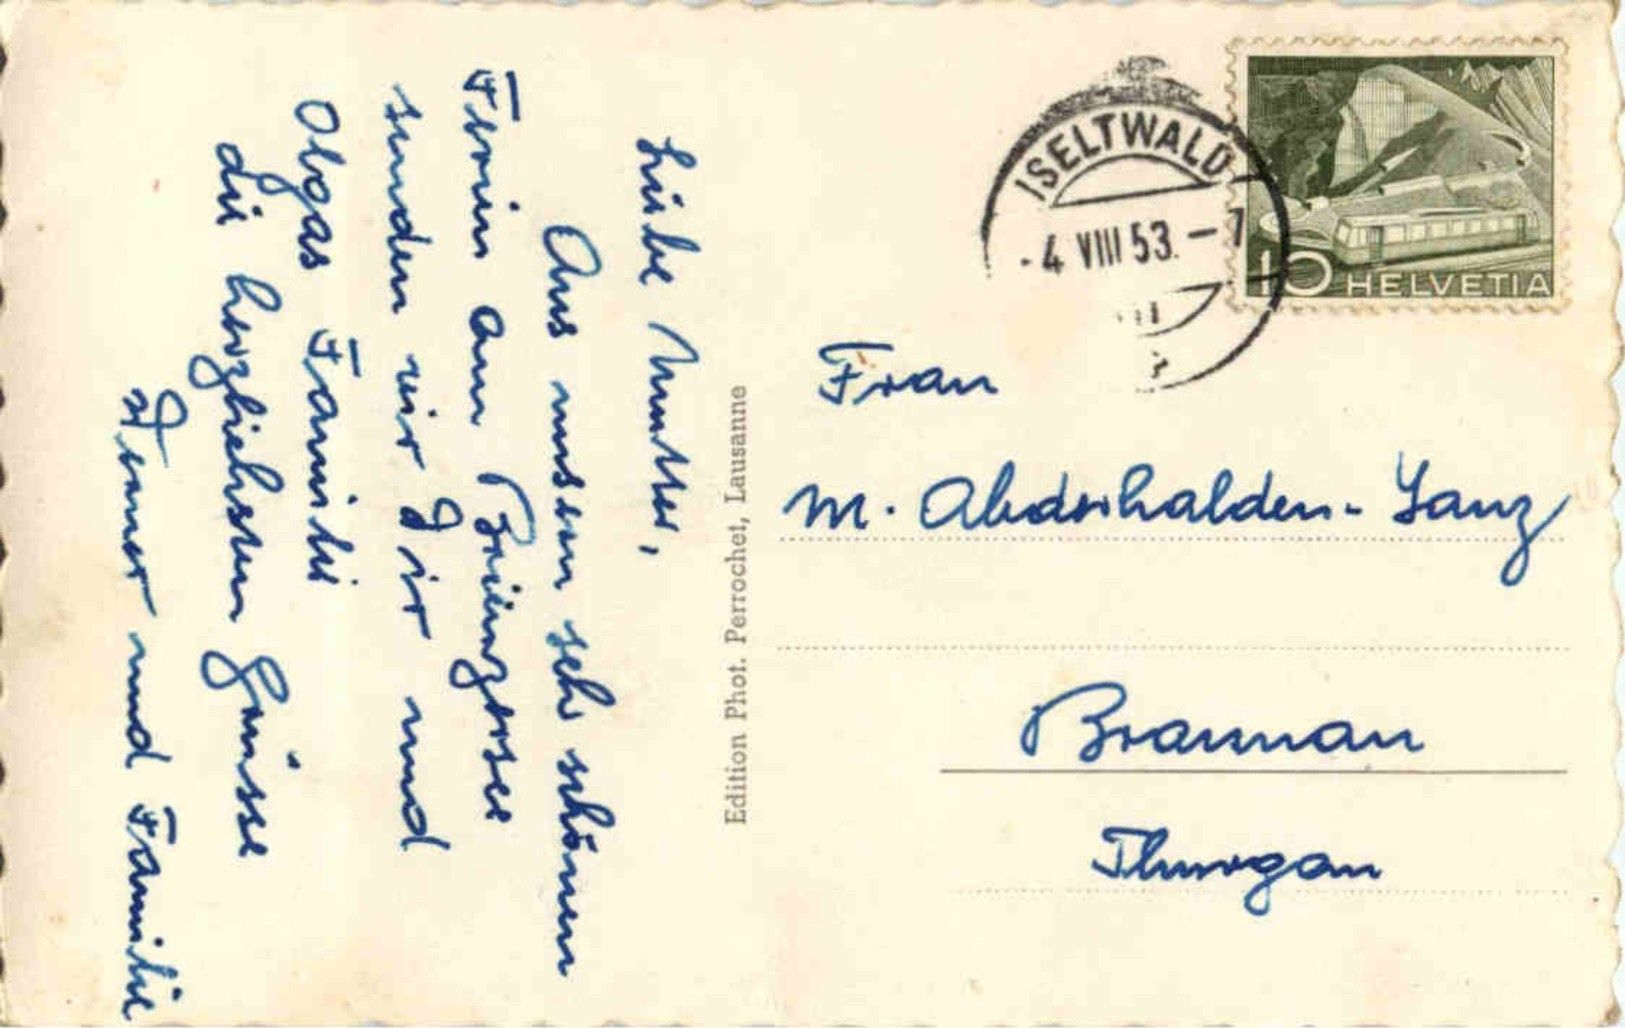 Liebe Mutter,
Aus unsern sehr schönen
Ferien am Brienzersee
senden wir Dir und
Olgas Familie
die herzlichsten Grüsse
Werner und Familie
Edition Phot. Perrochet, Lausanne
ISELTWALD
-4 VIII 53. - 7
10 HELVETIA
Frau
M. Abderhalden-Lanz
Braunau
Thurgau